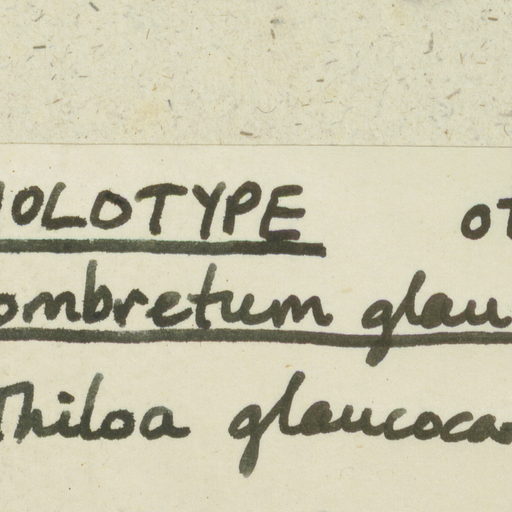 HOLOTYPE of
ombretum glau
Thiloa glaucoca